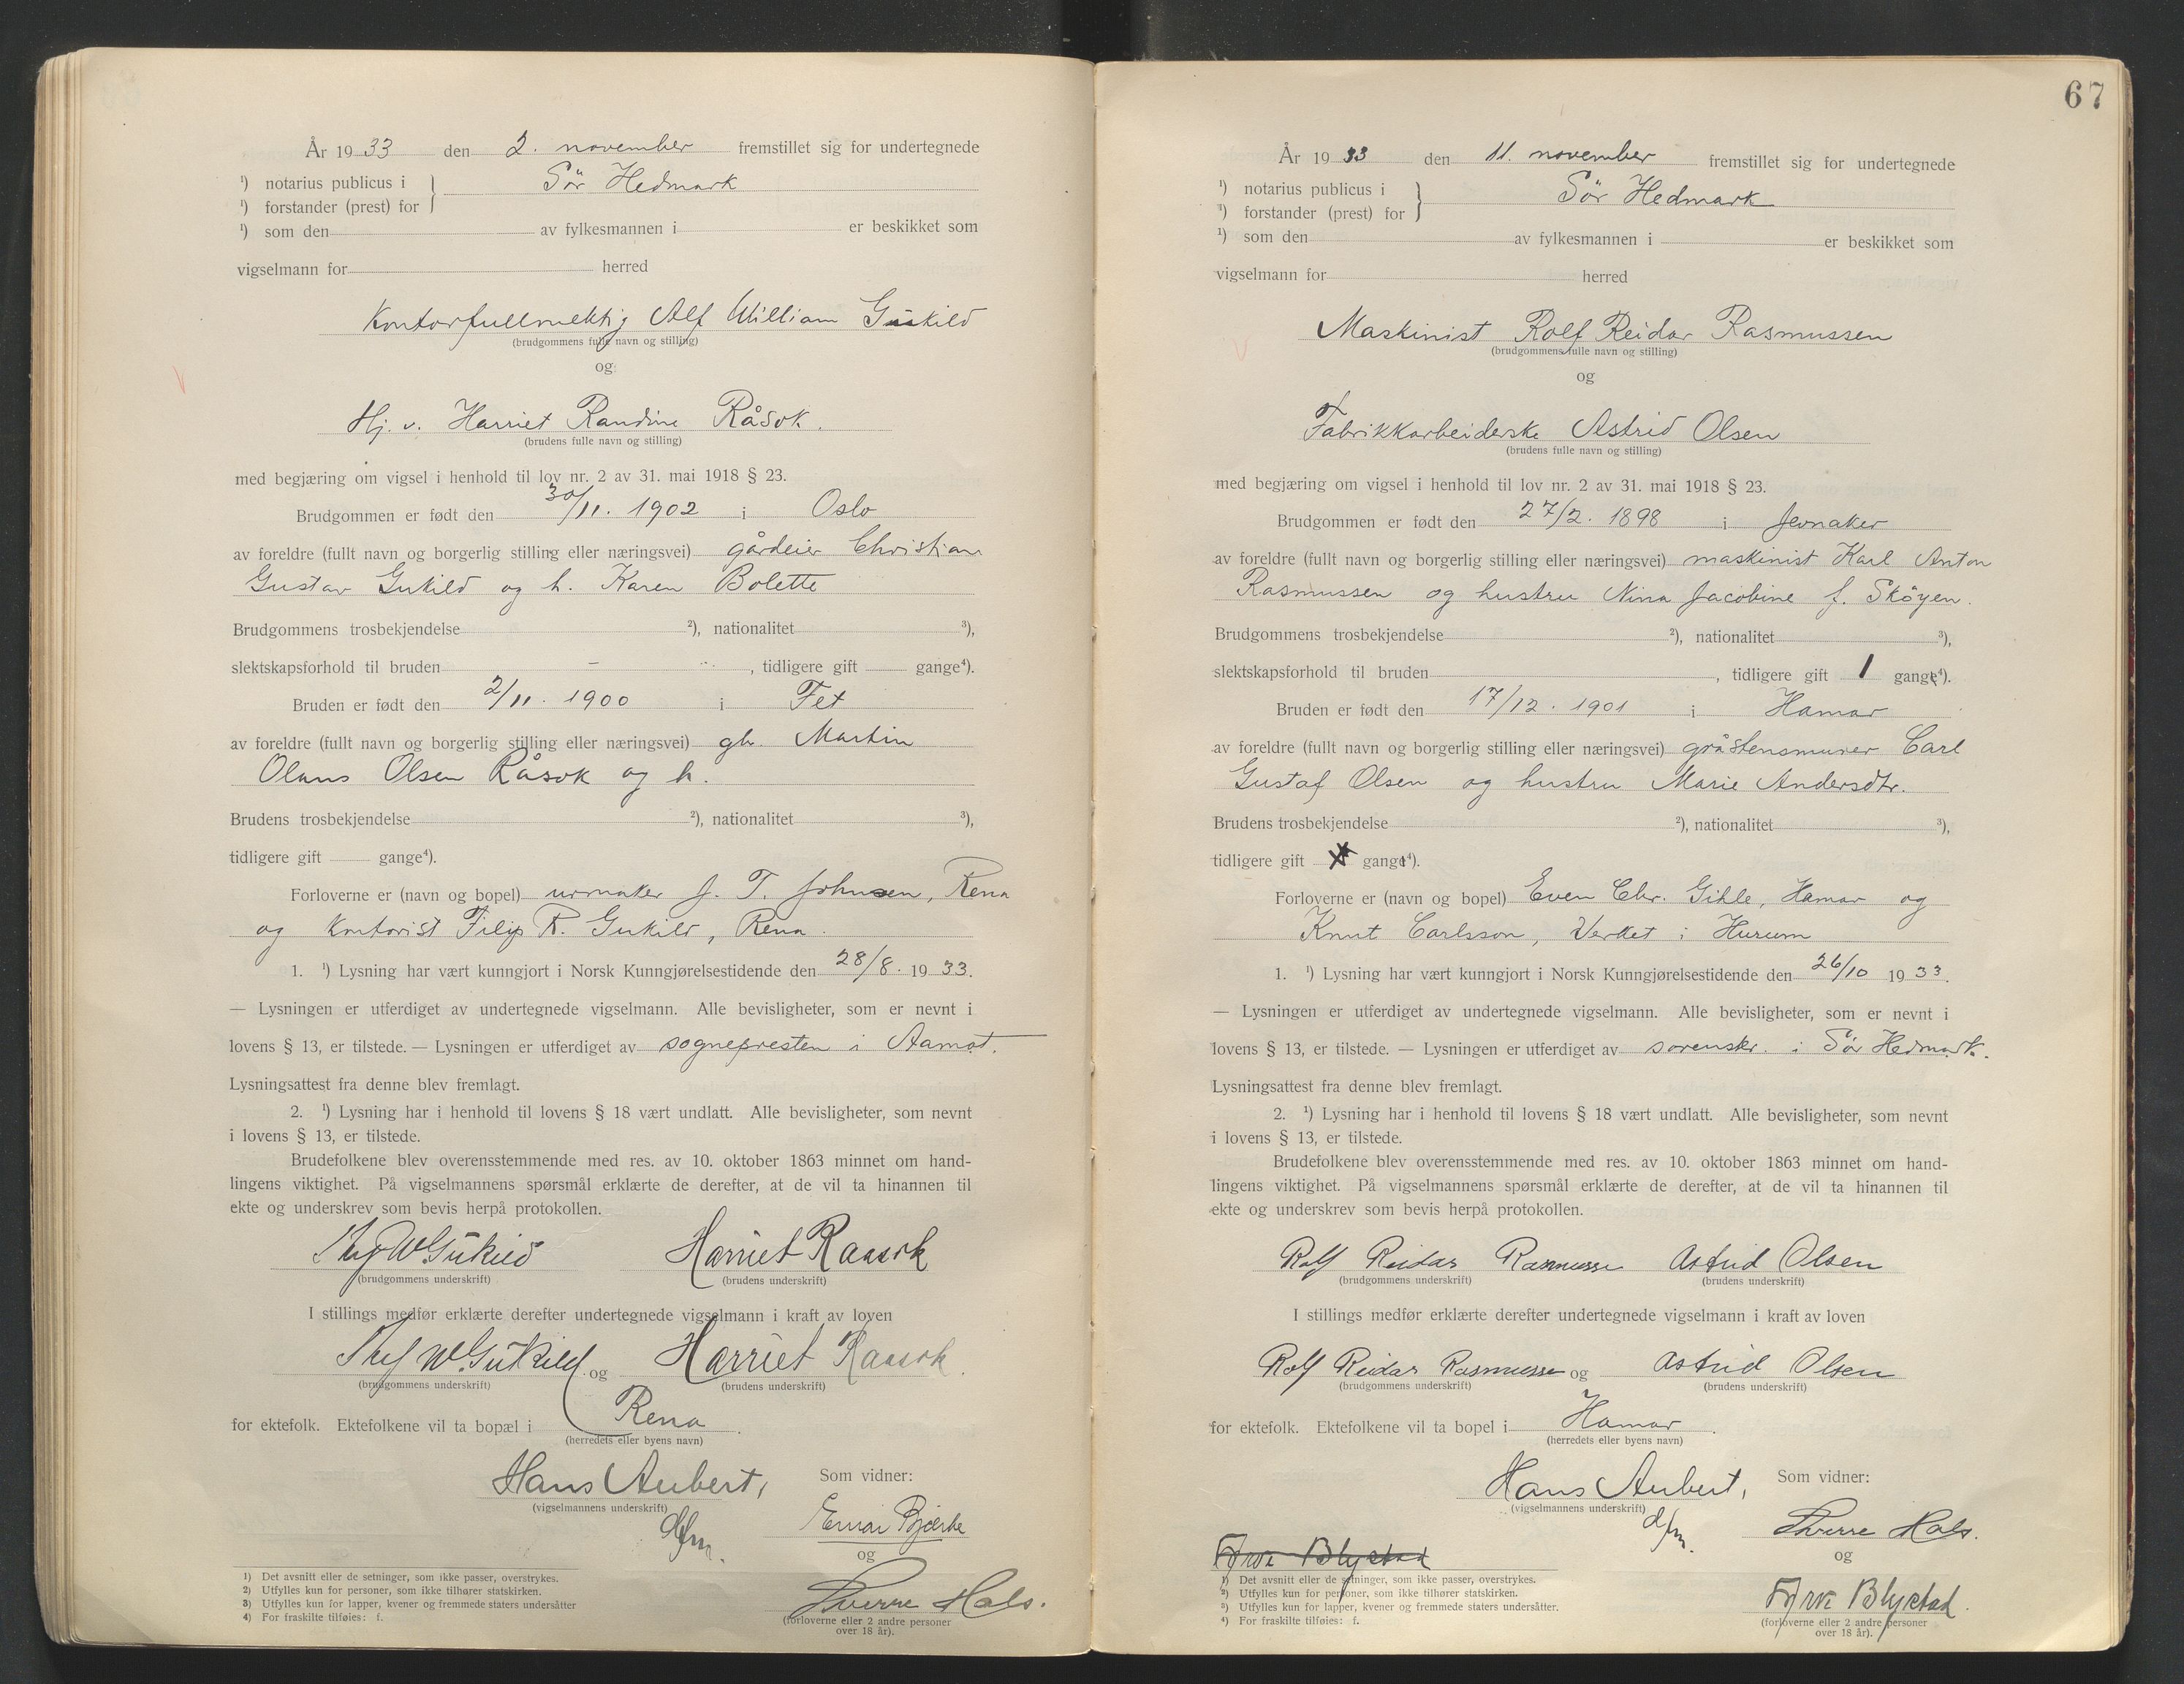 År 1933 den 2. november fremstillet sig for undertegnede
¹) notarius publicus i } Sör Hedmark
¹) forstander (prest) for
¹) som den av fylkesmannen i er beskikket som
vigselmann for herred
Kontorfullmektig Alf William Gukild
(brudgommens fulle navn og stilling)
og
Hj. v. Harriet Randine Råsok.
(brudens fulle navn og stilling)
med begjæring om vigsel i henhold til lov nr. 2 av 31. mai 1918 § 23.
Brudgommen er født den 30/11. 1902 i Oslo
av foreldre (fullt navn og borgerlig stilling eller næringsvei) gårdeier Christian
Gustav Gukild og h. Karen Bolette
Brudgommens trosbekjendelse ²), nationalitet ³),
slektskapsforhold til bruden – , tidligere gift gange⁴).
Bruden er født den 2/11. 1900 i Fet
av foreldre (fullt navn og borgerlig stilling eller næringsvei) gbr. Martin
Olaus Olsen Råsok og h.
Brudens trosbekjendelse ²), nationalitet ³),
tidligere gift gange⁴).
Forloverne er (navn og bopel) urmaker J. T. Johnsen, Rena
og kontorist Filip R. Gukild, Rena.
1. ¹) Lysning har vært kunngjort i Norsk Kunngjørelsestidende den 28/8. 1933.
— Lysningen er utferdiget av undertegnede vigselmann. Alle bevisligheter, som er nevnt i
lovens § 13, er tilstede. — Lysningen er utferdiget av sognepresten i Aamot.
Lysningsattest fra denne blev fremlagt.
2. ¹) Lysning har i henhold til lovens § 18 vært undlatt. Alle bevisligheter, som nevnt
i lovens § 13, er tilstede.
Brudefolkene blev overensstemmende med res. av 10. oktober 1863 minnet om hand-
lingens viktighet. På vigselmannens spørsmål erklærte de derefter, at de vil ta hinannen til
ekte og underskrev som bevis herpå protokollen.
Alf W Gukild Harriet Raasok
(brudgommens underskrift) (brudens underskrift)
I stillings medfør erklærte derefter undertegnede vigselmann i kraft av loven
Alf W Gukild og Harriet Raasok.
(brudgommens underskrift) (brudens underskrift)
for ektefolk. Ektefolkene vil ta bopæl i Rena.
(herredets eller byens navn)
Hans Aubert, Som vidner:
(vigselmannens underskrift)
dfm. Einar Bjerke
og
Sverre Hals.
(forloverne eller 2 andre personer
over 18 år).
1) Det avsnitt eller de setninger, som ikke passer, overstrykes.
2) Utfylles kun for personer, som ikke tilhører statskirken.
3) Utfylles kun for lapper, kvener og fremmede staters undersåtter
4) For fraskilte tilføies: f.
67
År 1933 den 11. november fremstillet sig for undertegnede
¹) notarius publicus i } Sör Hedmark
¹) forstander (prest) for
¹) som den av fylkesmannen i er beskikket som
vigselmann for herred
Maskinist Rolf Reidar Rasmussen
(brudgommens fulle navn og stilling)
og
Fabrikkarbeiderske Astrid Olsen
(brudens fulle navn og stilling)
med begjæring om vigsel i henhold til lov nr. 2 av 31. mai 1918 § 23.
Brudgommen er født den 27/2. 1898 i Jevnaker
av foreldre (fullt navn og borgerlig stilling eller næringsvei) maskinist Karl Anton
Rasmussen og hustru Nina Jacobine f. Sköyen.
Brudgommens trosbekjendelse ²), nationalitet ³),
slektskapsforhold til bruden , tidligere gift 1 gange⁴).
Bruden er født den 17/12. 1901 i Hamar
av foreldre (fullt navn og borgerlig stilling eller næringsvei) gråstensmurer Carl
Gustaf Olsen og hustru Marie Andersdtr.
Brudens trosbekjendelse ²), nationalitet ³),
tidligere gift gange⁴).
Forloverne er (navn og bopel) Even Chr. Gihle, Hamar og
Knut Carlsson, Verket i Hurum
1. ¹) Lysning har vært kunngjort i Norsk Kunngjørelsestidende den 26/10 1933.
— Lysningen er utferdiget av undertegnede vigselmann. Alle bevisligheter, som er nevnt i
lovens § 13, er tilstede. — Lysningen er utferdiget av sorenskr. i Sör Hedmark.
Lysningsattest fra denne blev fremlagt.
2. ¹) Lysning har i henhold til lovens § 18 vært undlatt. Alle bevisligheter, som nevnt
i lovens § 13, er tilstede.
Brudefolkene blev overensstemmende med res. av 10. oktober 1863 minnet om hand-
lingens viktighet. På vigselmannens spørsmål erklærte de derefter, at de vil ta hinannen til
ekte og underskrev som bevis herpå protokollen.
Rolf Reidar Rasmussen Astrid Olsen
(brudgommens underskrift) (brudens underskrift)
I stillings medfør erklærte derefter undertegnede vigselmann i kraft av loven
Rolf Reidar Rasmussen og Astrid Olsen
(brudgommens underskrift) (brudens underskrift)
for ektefolk. Ektefolkene vil ta bopel i Hamar.
(herredets eller byens navn)
Hans Aubert, Som vidner:
(vigselmannens underskrift)
dfm. Sverre Hals.
og
Arve Blystad
Arve Blystad.
(forloverne eller 2 andre personer
over 18 år).
¹) Det avsnitt eller de setninger, som ikke passer, overstrykes.
²) Utfylles kun for personer, som ikke tilhører statskirken.
³) Utfylles kun for lapper, kvener og fremmede staters undersåtter.
⁴) For fraskilte tilføies: f.